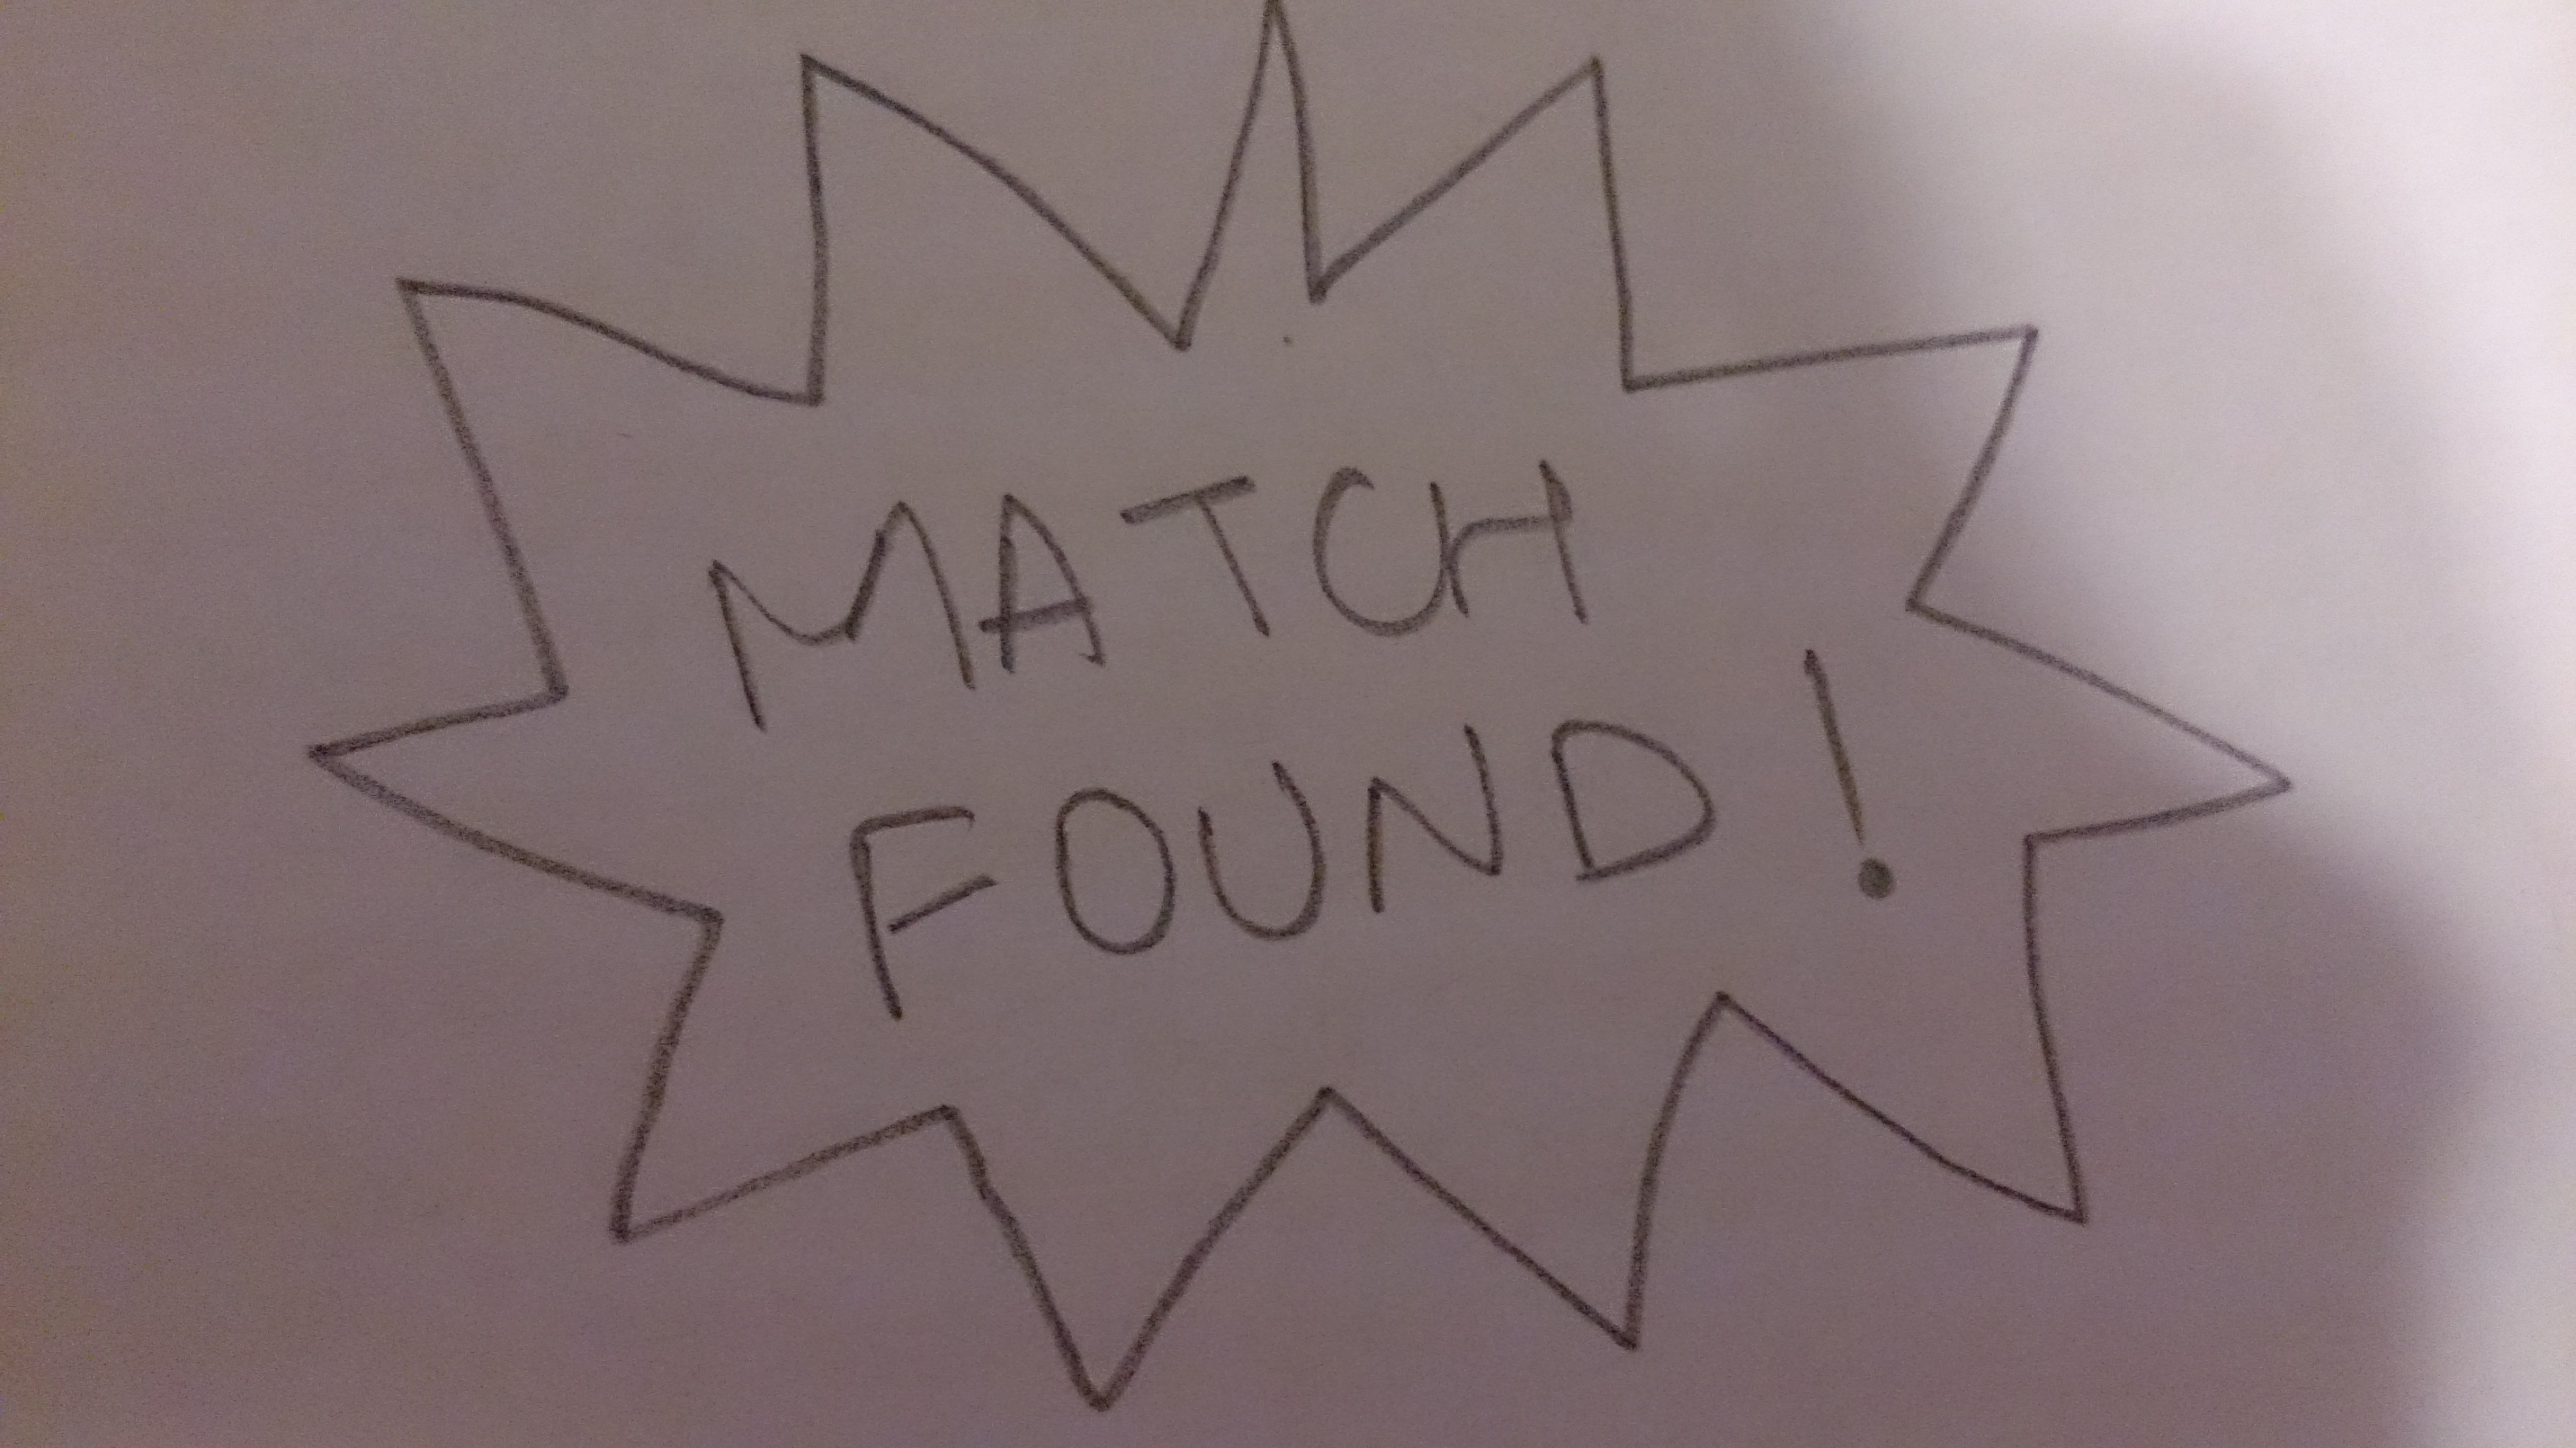 MATCH
FOUND!